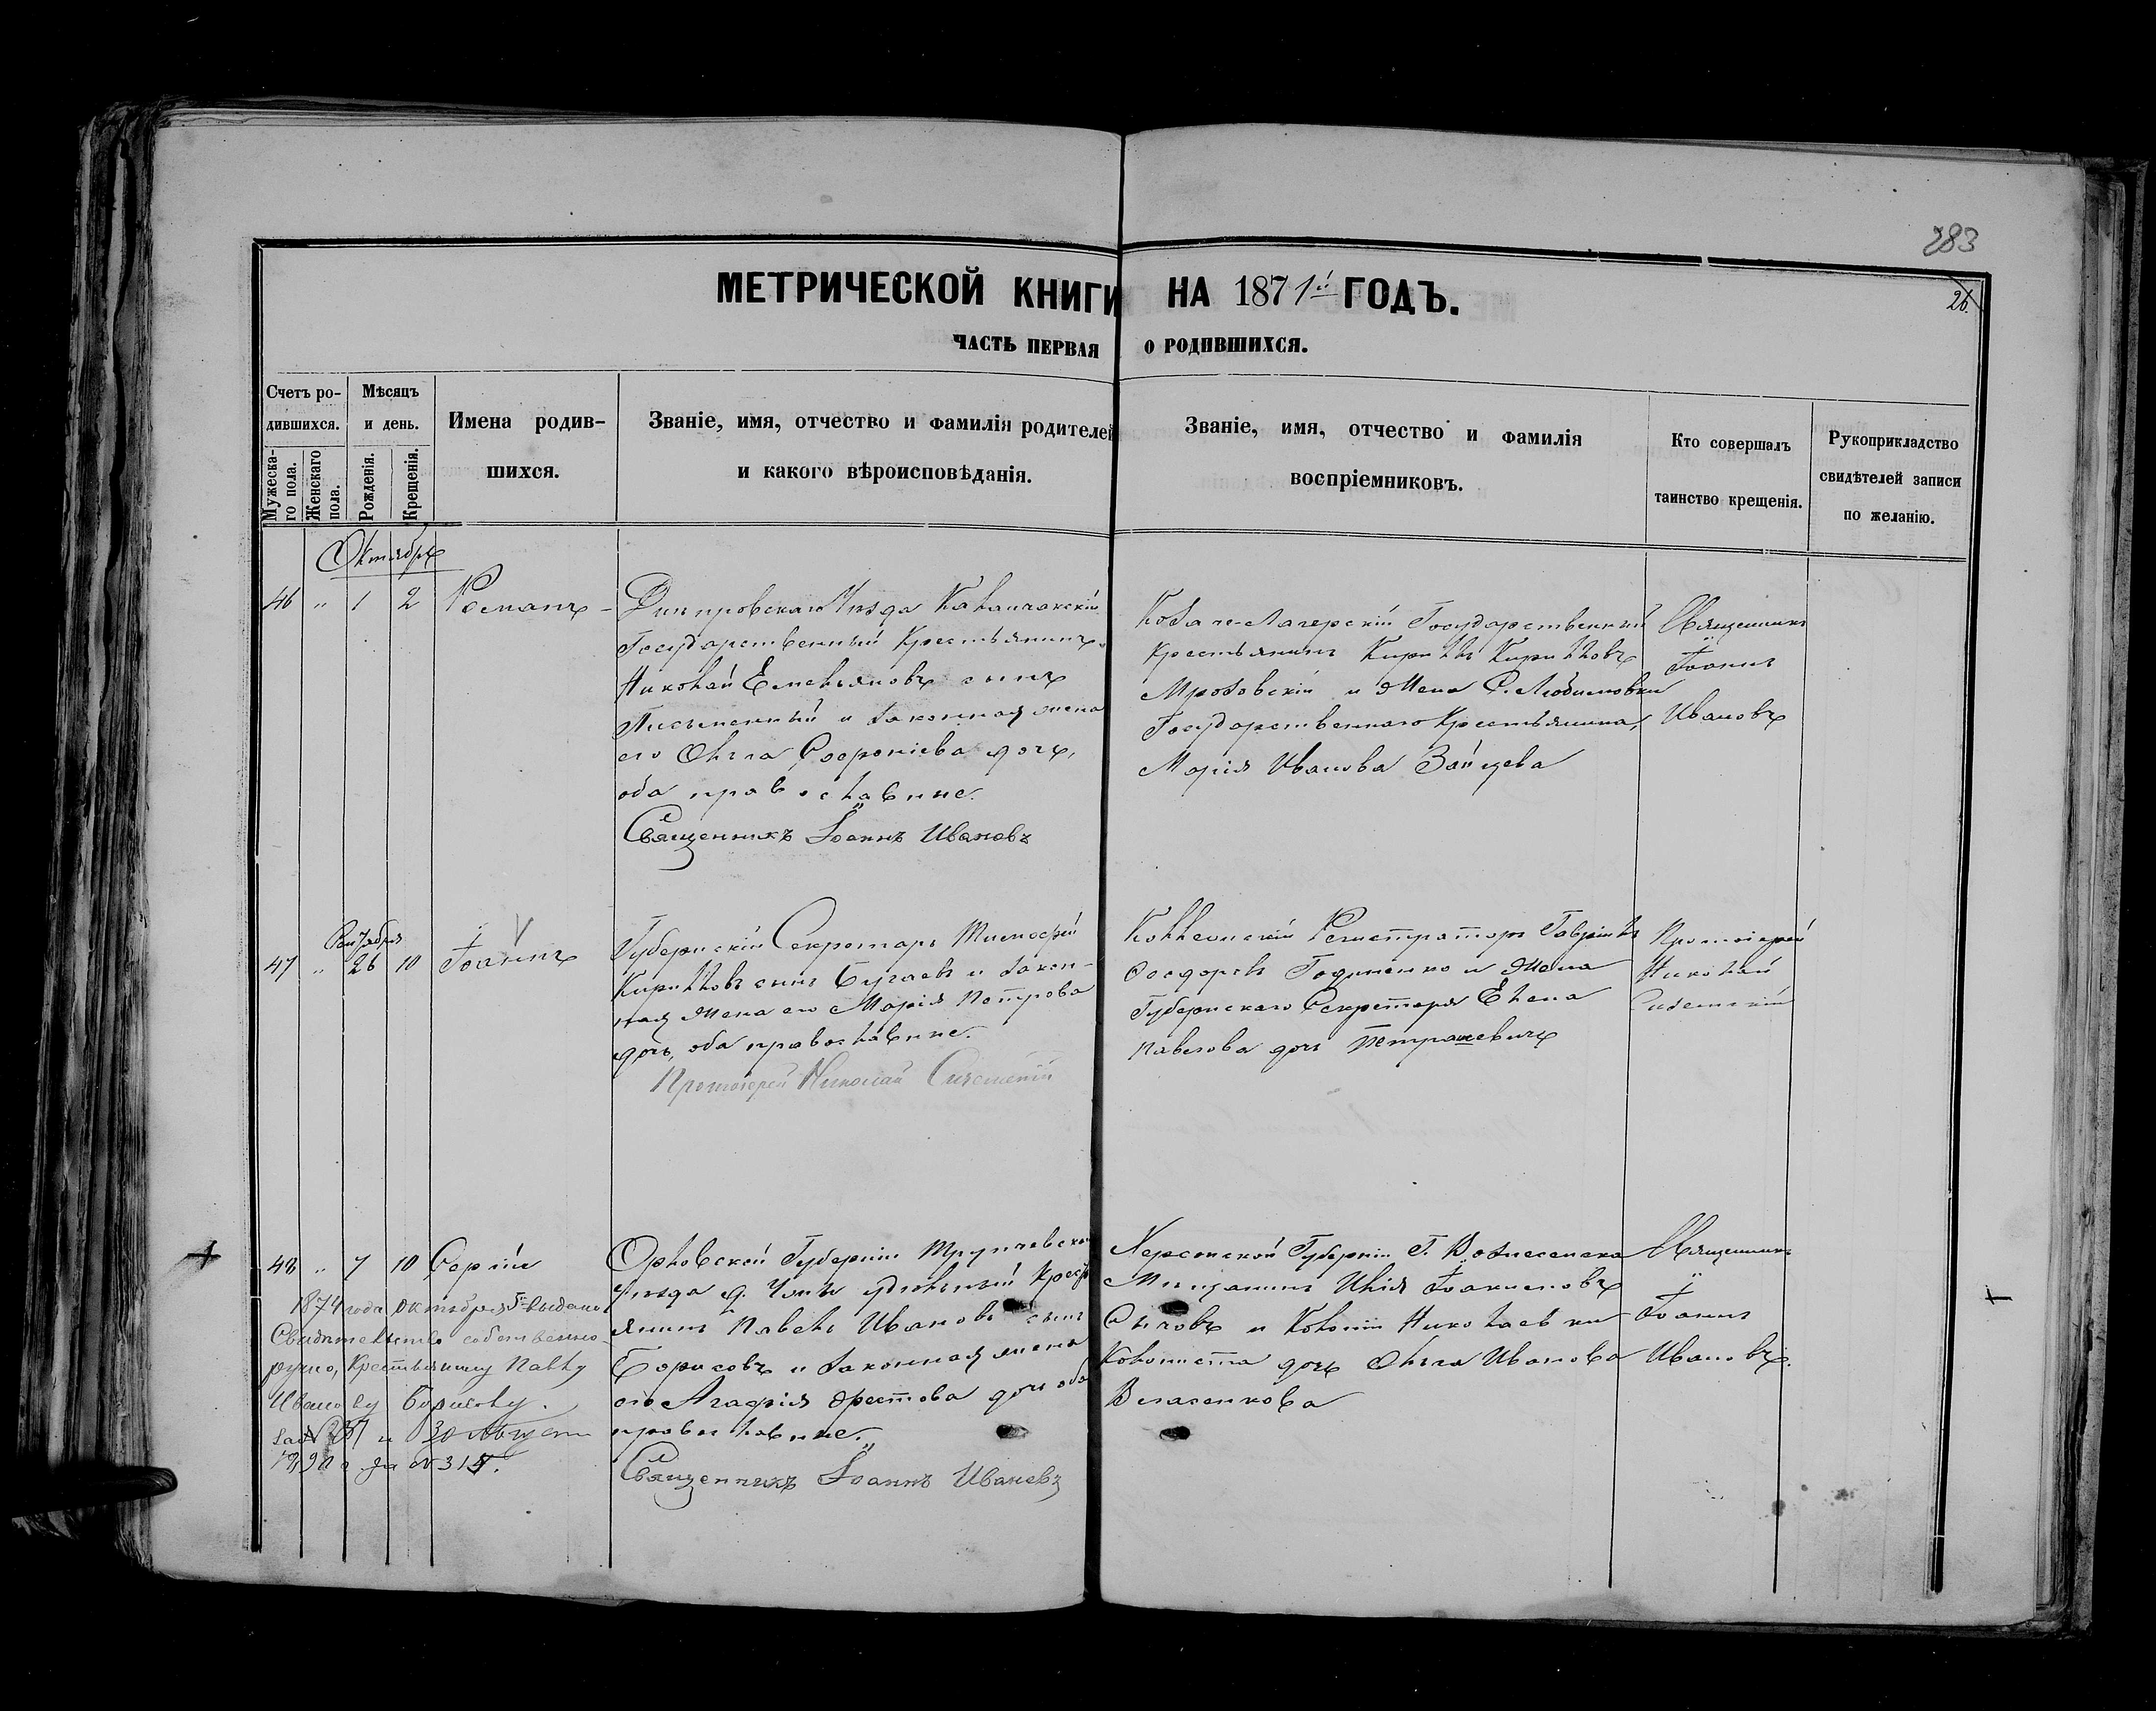 283
26.
МЕТРИЧЕСКОЙ КНИГИ НА 1871й ГОДЪ.
ЧАСТЬ ПЕРВАЯ О РОДИВШИХСЯ.
Счетъ ро-
дившихся.
Мужеска-
го пола.
Женскаго
пола.
Мѣсяцъ
и день.
Рожденія.
Крещенія.
Имена родив-
шихся.
Званіе, имя, отчество и фамилія родителей
и какого вѣроисповѣданія.
Званіе, имя, отчество и фамилія
воспріемниковъ.
Кто совершалъ
таинство крещенія.
Рукоприкладство
свидѣтелей записи
по желанію.
Октябрь
46 " 1 2 Романъ
Днепровскаго Уѣзда Каланчакскій
Государственный Крестьянинъ
Николай Емельяновъ сынъ
Письменный и законная жена
его Ольга Софроніева дочь,
оба православные.
Священникъ Іоаннъ Ивановъ
Козаче-Лагерскій Государственный
Крестьянинъ Кириллъ Кирилловъ
Мрозовскій и жена С. Любимовки
Государственнаго Крестьянина,
Марія Иванова Зайцева
Священникъ
Іоаннъ
Ивановъ
Сентября
47 " 26 10 Іоаннъ
Губернскій Секретарь Тимофей
Кирилловъ сынъ Бугаевъ и закон-
ная жена его Марія Петрова
дочь, оба православные.
Протоіерей Николай
Коллежскій Регистраторъ Гавріилъ
Феодоровъ Годиненко и жена
Губернскаго Секретаря Елена
Павлова дочь Петрашевичъ
Протоіерей
Николай
48 " 7 10 Сергій
1874 года Октября 5 выдано
Свидетельство собственно
ручно, Крестьянину Павлу
Иванову Борисову.
за № 237 и 30 Августа
1890 г за № 315.
Орловской Губерніи Трупчевскаго
уѣзда д. удѣльный Крестьянинъ
Павелъ Ивановъ сынъ
Борисовъ и законная жена
его Агафія Орестова дочь оба
православные.
Священникъ Іоаннъ Ивановъ
Херсонской Губерніи Г. Вознесенска
Мещанинъ Илія Іоакимовъ
Сычовъ и Колоніи Николаевки
Колониста дочь Ольга Иванова
Власенкова
Священникъ
Іоаннъ
Ивановъ.